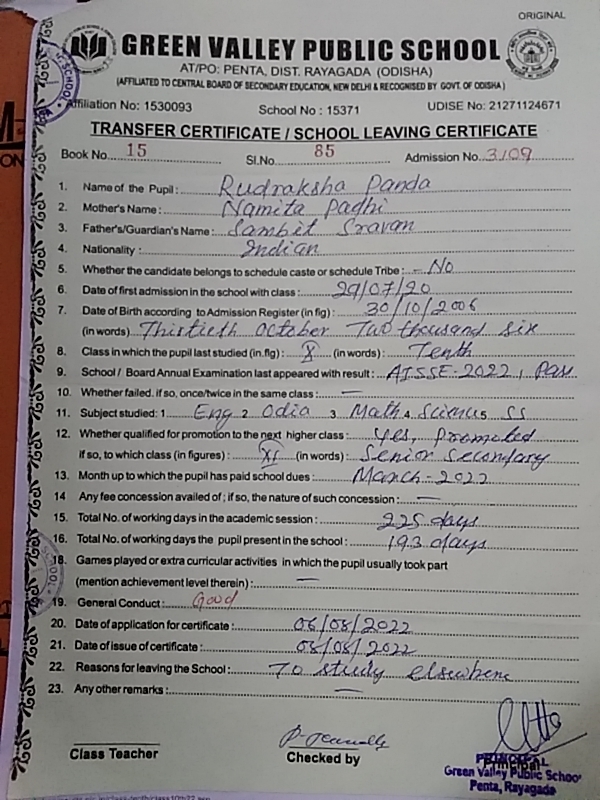 ORIGINAL
GREEN VALLEY PUBLIC SCHOOL
AT/PO: PENTA, DIST. RAYAGADA (ODISHA)
(AFFILIATED TO CENTRAL BOARD OF SECONDARY EDUCATION, NEW DELHI & RECOGNISED BY GOVT. OF ODISHA)
Affiliation No: 1530093 School No : 15371 UDISE No: 21271124671
TRANSFER CERTIFICATE / SCHOOL LEAVING CERTIFICATE
Book No. 15 Sl.No. 85 Admission No. 3109
1. Name of the Pupil : Rudraksha Panda
2. Mother's Name : Namita Padhi
3. Father's/Guardian's Name : Sambit Sravan
4. Nationality : Indian
5. Whether the candidate belongs to schedule caste or schedule Tribe : - No
6. Date of first admission in the school with class : 29/07/20
7. Date of Birth according to Admission Register (in fig) : 30/10/2006
(in words) Thirtieth October Two thousand six
8. Class in which the pupil last studied (in.fig) : X (in words) : Tenth
9. School / Board Annual Examination last appeared with result : AISSE-2022, Pass
10. Whether failed. if so, once/twice in the same class : —
11. Subject studied: 1. Eng 2. Odia 3. Math 4. Science 5. SS
12. Whether qualified for promotion to the next higher class : Yes, Promoted
if so, to which class (in figures) : XI (in words) : Senior Secondary
13. Month up to which the pupil has paid school dues : March-2022
14 Any fee concession availed of ; if so, the nature of such concession : —
15. Total No. of working days in the academic session : 225 days
16. Total No. of working days the pupil present in the school : 193 days
18. Games played or extra curricular activities in which the pupil usually took part
(mention achievement level therein) : —
19. General Conduct : Good
20. Date of application for certificate : 06/08/2022
21. Date of issue of certificate : 08/08/2022
22. Reasons for leaving the School : To study elsewhere
23. Any other remarks : —
Class Teacher Checked by Principal
PRINCIPAL
Green Valley Public School
Penta, Rayagada